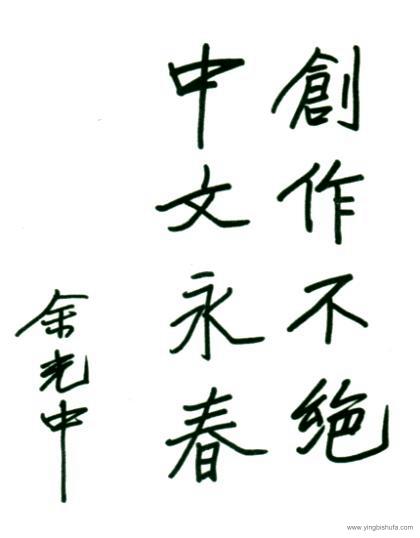 創作不絕
中文永春
余光中
www.yingbishufa.com